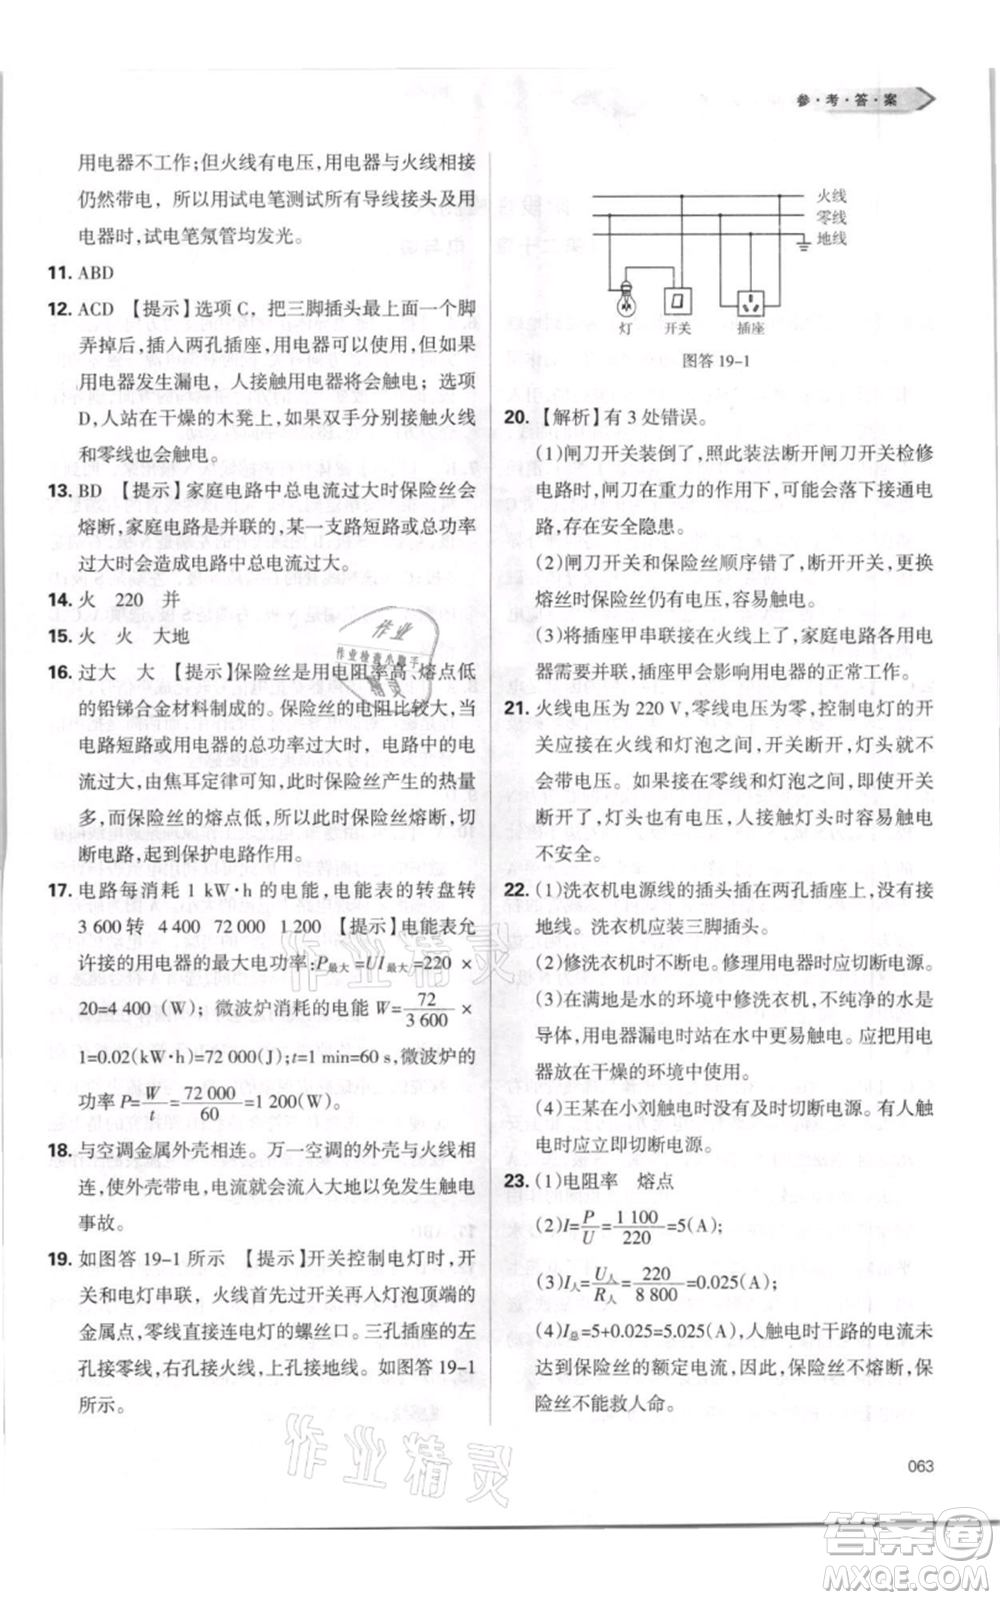 参·考·答·案
用电器不工作;但火线有电压,用电器与火线相接
仍然带电，所以用试电笔测试所有导线接头及用
电器时,试电笔氖管均发光。
11. ABD
12. ACD 【提示】选项 C，把三脚插头最上面一个脚
弄掉后，插入两孔插座，用电器可以使用，但如果
用电器发生漏电，人接触用电器将会触电；选项
D,人站在干燥的木凳上，如果双手分别接触火线
和零线也会触电。
13. BD 【提示】家庭电路中总电流过大时保险丝会
熔断,家庭电路是并联的，某一支路短路或总功率
过大时会造成电路中总电流过大。
14. 火 220 并
15. 火 火 大地
16. 过大 大 【提示】保险丝是用电阻率高、熔点低
的铅锑合金材料制成的。保险丝的电阻比较大,当
电路短路或用电器的总功率过大时，电路中的电
流过大,由焦耳定律可知,此时保险丝产生的热量
多,而保险丝的熔点低,此时保险丝会熔断,切
断电路,起到保护电路作用。
17. 电路每消耗 1 kW·h 的电能，电能表的转盘转
3 600转 4 400 72 000 1 200 【提示】电能表允
许接的用电器的最大电功率:P最大=UI最大=220 ×
20=4 400 (W)；微波炉消耗的电能 W=72/3 600 ×
1=0.02(kW·h)=72 000(J);t=1 min=60 s,微波炉的
功率 P=W/t=72 000/60=1 200(W)。
18. 与空调金属外壳相连。万一空调的外壳与火线相
连,使外壳带电,电流就会流入大地以免发生触电
事故。
19. 如图答 19-1 所示 【提示】开关控制电灯时,开
关和电灯串联，火线首先过开关再入灯泡顶端的
金属点,零线直接连电灯的螺丝口。三孔插座的左
孔接零线,右孔接火线,上孔接地线。如图答 19-1
所示。
火线
零线
地线
灯 开关 插座
图答 19-1
20.【解析】有 3 处错误。
(1)闸刀开关装倒了，照此装法断开闸刀开关检修
电路时,闸刀在重力的作用下，可能会落下接通电
路,存在安全隐患。
(2)闸刀开关和保险丝顺序错了,断开开关,换
熔丝时保险丝仍有电压,容易触电。
(3)将插座甲串联接在火线上了,家庭电路各用电
器要并联,插座甲会影响用电器的正常工作。
21. 火线电压为 220 V,零线电压为零,控制电灯的开
关应接在火线和灯泡之间,开关断开,灯头就不
会带电压。如果开关接在零线和灯泡之间,即使开关
断开,灯头也有电压,人接触灯头时容易触电
不安全。
22. (1)洗衣机电源线的插头插在两孔插座上,没有接
地线。洗衣机应装三脚插头。
(2)修洗衣机时不断电。修理用电器时应切断电源。
(3)在满地是水的环境中修洗衣机,不纯净的水是
导体,用电器漏电时站在水中更易触电。应把用电
器放在干燥的环境中使用。
(4)王某在小刘触电时没有及时切断电源。有人触
电时应立即切断电源。
23. (1)电阻率 熔点
(2)I=P/U=1 100/220=5(A);
(3)I人=U人/R人=220/8 800=0.025(A);
(4)I总=5+0.025=5.025(A),人触电时干路的电流未
达到保险丝的额定电流,因此,保险丝不熔断,保
险丝不能救人命。
063
作业
作业检查小助手
精灵
作业精灵
作业精灵
答案圈
MXQE.COM